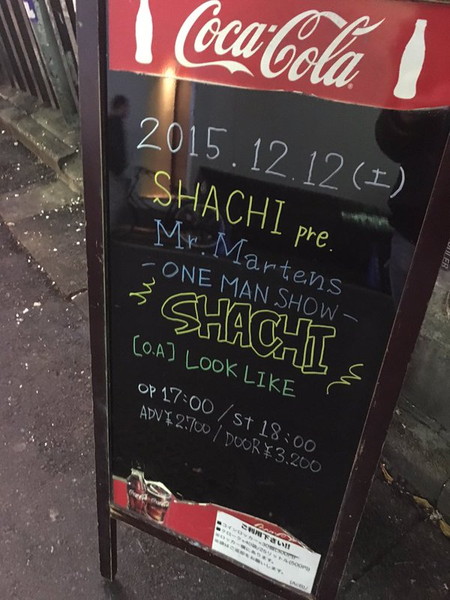 Coca-Cola
2015.12.12(土)
SHACHI pre.
Mr. Martens
-ONE MAN SHOW-
SHACHI
[O.A] LOOK LIKE
OP 17:00 / St 18:00
ADV¥2.700 / DOOR¥3.200
Coca-Cola
ご利用下さい!!